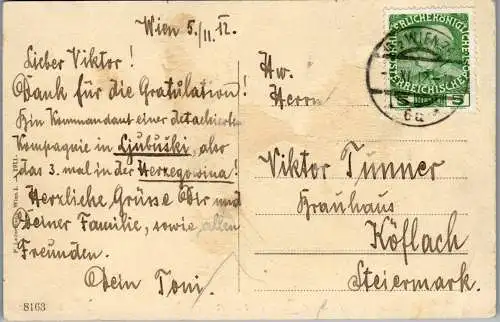 Wien 5./II. 12.
Lieber Viktor!
Dank für die Gratulation!
Bin Kommandant einer detachierten
Kompagnie in Ljubuški, also
das 3. mal in der Herzegowina!
Herzliche Grüsse Dir und
Deiner Familie, sowie allen
Freunden.
Dein Toni.
8163
WIEN
6a
5
Hw.
Herrn
Viktor Tunner
Brauhaus
Köflach
Steiermark.